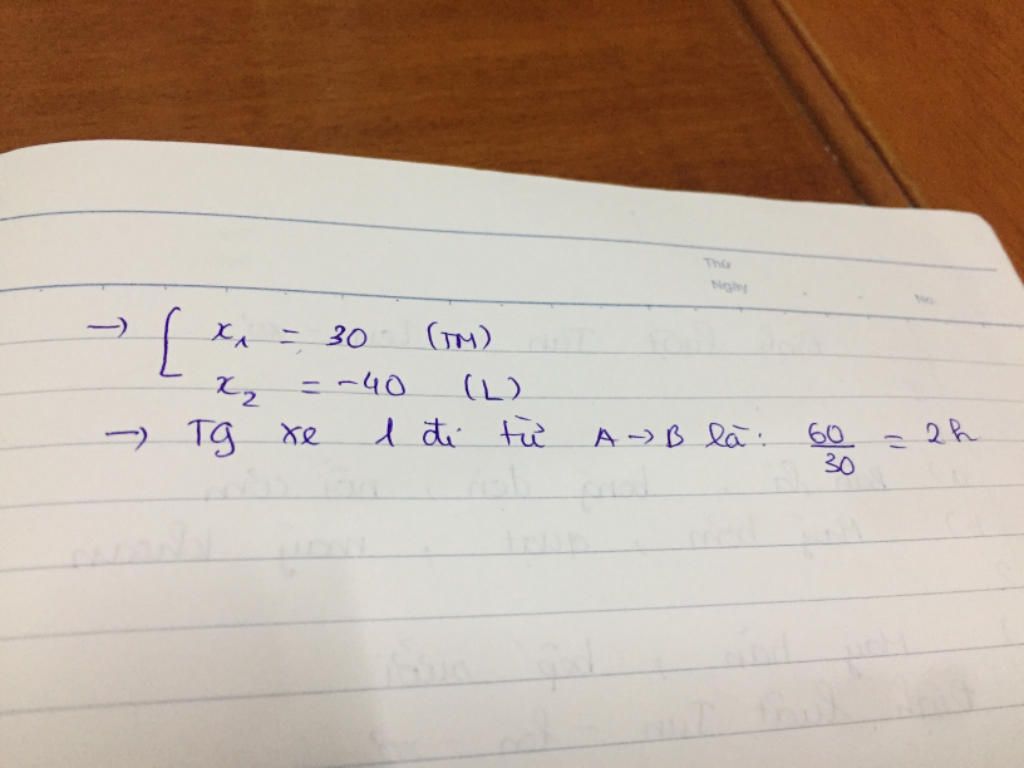 Thứ
Ngày
No.
→ [ x₁ = 30 (TM)
x₂ = -40 (L)
→ TG xe 1 đi từ A → B là: 60/30 = 2h